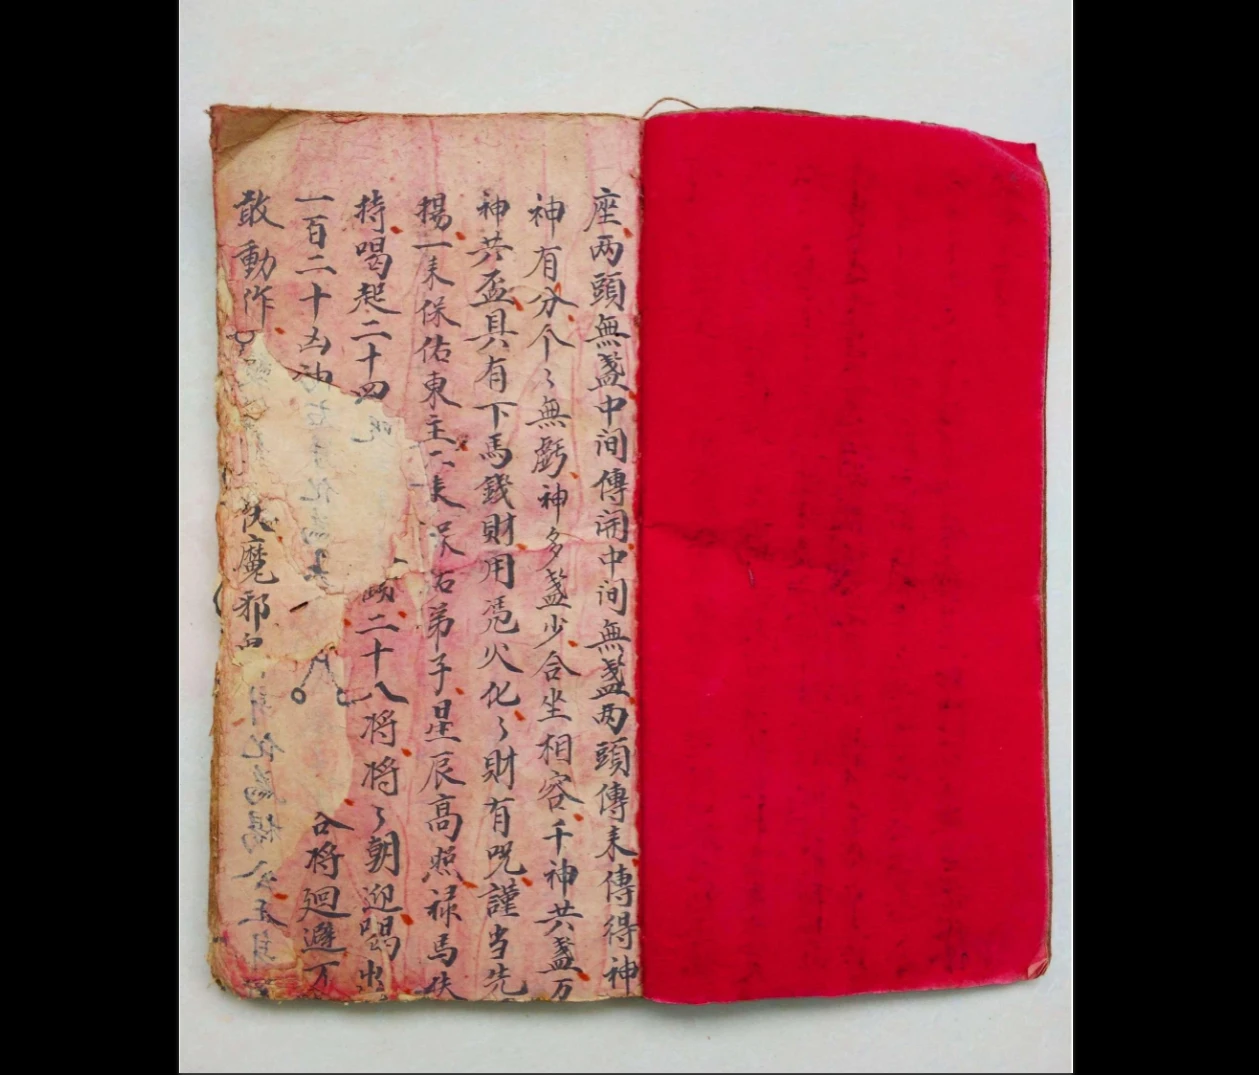 座两頭無盞中间傳開中间無盞两頭傳耒傳得神
神有分个〻無虧神多盞少合坐相容千神共盞万
神共盃具有下馬錢財用凴火化〻財有咒謹当先
揚一耒保佑東主二耒保佑弟子星辰高照禄馬扶
持喝起二十四 二十八将将〻朝迎喝出
一百二十凶神 合将廻避不
敢動作 伏魔邪